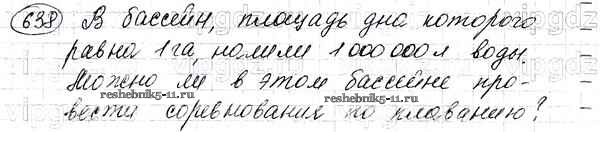 638 В бассейн, площадь дна которого
равна 1 га, налили 1 000 000 л воды.
Можно ли в этом бассейне про-
вести соревнования по плаванию?
reshebnik5-11.ru
reshebnik5-11.ru